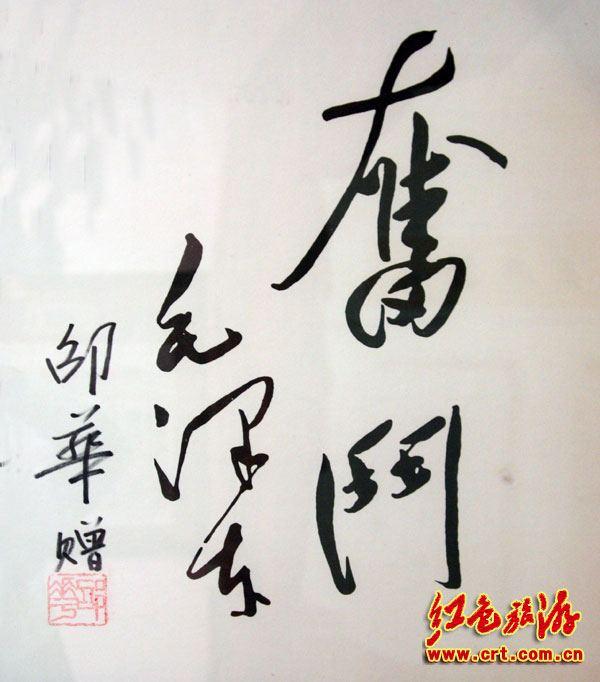 奮鬥
毛澤东
邵華赠
邵華
红色旅游
www.crt.com.cn